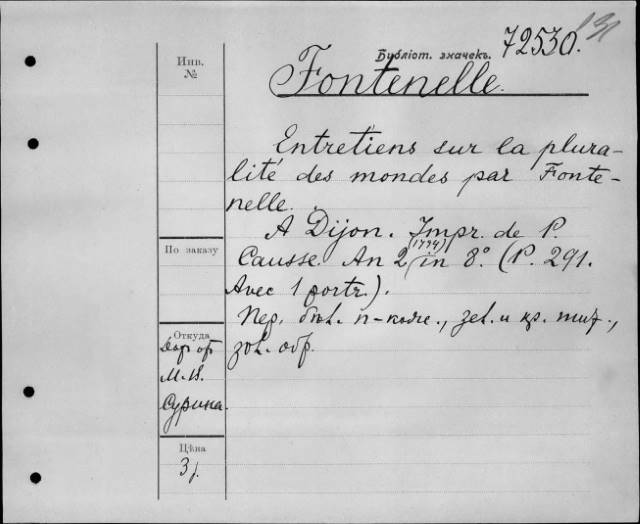 Библіот. значекъ. 72530.
Инв.
№
Fontenelle.
Entretiens sur la plura-
lité des mondes par Fonte-
nelle.
A Dijon. Impr. de P.
(1794)
Causse. An 2 in 8° (P. 291.
Avec 1 portr.).
По заказу
Пер. бѣл. п-коже., зел. и кр. тит.,
зол. обр.
Откуда
Дар от
М. В.
Сурина.
Цѣна
3 р.